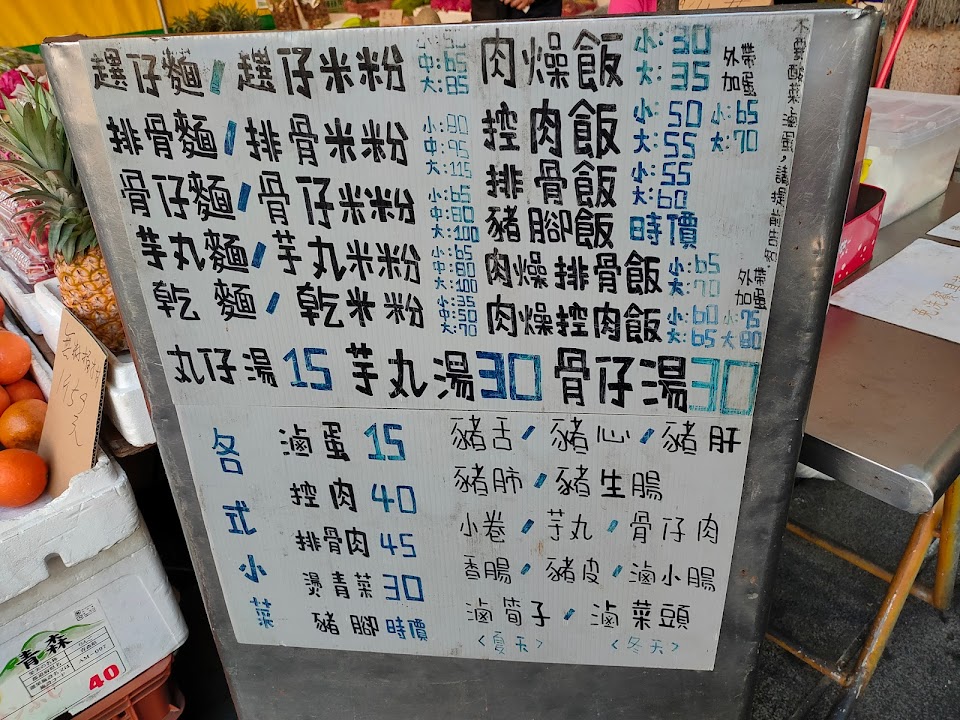 麵/米粉 中:65 大:85
排骨麵/排骨米粉 小:80 中:95 大:115
骨仔麵/骨仔米粉 小:65 中:80 大:100
芋丸麵/芋丸米粉 小:65 中:80 大:100
乾麵/乾米粉 小:35 中:50 大:70
肉燥飯 小:30 大:35 外帶加蛋
控肉飯 小:50 大:55 小:65 大:70
排骨飯 小:55 大:60
豬腳飯 時價
肉燥排骨飯 小:65 大:70 外帶加蛋
肉燥控肉飯 小:60 大:65 小:75 大80
丸仔湯15 芋丸湯30 骨仔湯30
各式小菜
滷蛋15
控肉40
排骨肉45
燙青菜30
豬腳時價
豬舌/豬心/豬肝
豬肺/豬生腸
小卷/芋丸/骨仔肉
香腸/豬皮/滷小腸
滷筍子/滷菜頭
<夏天> <冬天>
青森
AM-007
40